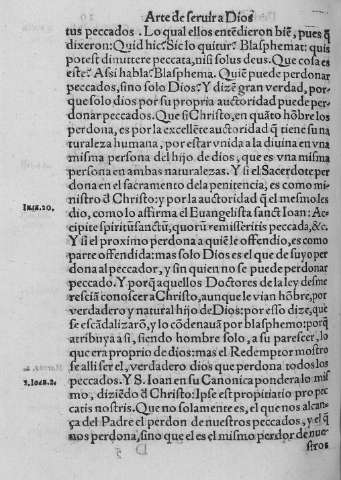 Arte de seruir a Dios
tus peccados. Lo qual ellos entēdieron biē, pues q̄
dixeron: Quid hic? Sic loquitur? Blasphemat: quis
potest dimittere peccata, nisi solus Deus. Que cosa es
este? Assi habla? Blasphema. Quiē puede perdonar
peccados, sino solo Dios? Y dizē gran verdad, por-
que solo dios por su propria auctoridad puede per-
donar peccados. Que si Christo, en quāto hōbre los
perdona, es por la excellēte auctoridad q̄ tiene su na
turaleza humana, por estar vnida a la diuina en vna
misma persona del hijo de dios, que es vna misma
persona en ambas naturalezas. Y si el Sacerdote per
dona en el sacramento dela penitencia, es como mi-
nistro d̄ Christo: y por la auctoridad q̄ el mesmo les
Ioā. 20.
dio, como lo affirma el Euangelista sanct Ioan: Ac-
cipite spiritū sanctū, quorū remiseritis peccata, &c.
Y si el proximo perdona a quiē le offendio, es como
parte offendida: mas solo Dios es el que de suyo per
dona al peccador, y sin quien no se puede perdonar
peccado. Y porq̄ aquellos Doctores de la ley desme
resciā conoscer a Christo, aunque le vian hōbre, por
verdadero y natural hijo de Dios: por esso dize, que
se escādalizarō, y lo cōdenauā por blasphemo: porq̄
atribuya a si, siendo hombre solo, a su parescer, lo
que era proprio de dios: mas el Redemptor mostro
se alli ser el, verdadero dios que perdona todos los
1. Ioā. 2.
peccados. Y S. Ioan en su Canonica pondera lo mis
mo, diziēdo d̄ Christo: Ipse est propitiatio pro pec
catis nostris. Que no solamente es, el que nos alcan-
ça del Padre el perdon de nuestros peccados, y el q̄
nos perdona, sino que es el mismo perdon de nue-
stros